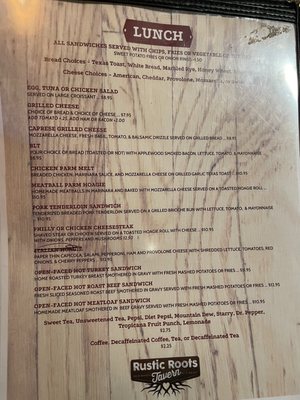 LUNCH
ALL SANDWICHES SERVED WITH CHIPS, FRIES OR VEGETABLE OF THE DAY
SWEET POTATO FRIES OR ONION RINGS
Bread Choices - Texas Toast, White Bread, Marbled Rye, Honey Wheat,
Cheese Choices - American, Cheddar, Provolone, Mozzarella,
EGG, TUNA OR CHICKEN SALAD
SERVED ON LARGE CROISSANT
GRILLED CHEESE
CHOICE OF BREAD & CHOICE OF CHEESE
ADD TOMATO ADD HAM OR BACON
CAPRESE GRILLED CHEESE
MOZZARELLA CHEESE, FRESH BASIL, TOMATO, & BALSAMIC DRIZZLE SERVED ON GRILLED BREAD
BLT
YOUR CHOICE OF BREAD (TOASTED OR NOT) WITH APPLEWOOD SMOKED BACON, LETTUCE, TOMATO, & MAYONNAISE
CHICKEN PARM MELT
BREADED CHICKEN, MARINARA SAUCE, AND MOZZARELLA CHEESE SERVED ON GRILLED GARLIC TEXAS TOAST
MEATBALL PARM HOAGIE
HOMEMADE MEATBALLS IN MARINARA AND BAKED WITH MOZZARELLA CHEESE SERVED ON A TOASTED HOAGIE ROLL
PORK TENDERLOIN SANDWICH
TENDERIZED BREADED PORK TENDERLOIN SERVED ON A GRILLED BRIOCHE BUN WITH LETTUCE, TOMATO, & MAYONNAISE
PHILLY OR CHICKEN CHEESESTEAK
SHAVED STEAK OR CHICKEN SERVED ON A TOASTED HOAGIE ROLL WITH CHEESE
WITH ONIONS, PEPPERS AND MUSHROOMS
PAPER THIN CAPICOLA, SALAMI, PEPPERONI, HAM AND PROVOLONE CHEESE WITH SHREDDED LETTUCE, TOMATOES, RED
ONIONS, & CHERRY PEPPERS
OPEN-FACED HOT TURKEY SANDWICH
HOME ROASTED TURKEY BREAST SMOTHERED IN GRAVY WITH FRESH MASHED POTATOES OR FRIES
OPEN-FACED HOT ROAST BEEF SANDWICH
FRESH SLICED SEASONED ROAST BEEF SMOTHERED IN GRAVY SERVED WITH FRESH MASHED POTATOES OR FRIES
OPEN-FACED HOT MEATLOAF SANDWICH
HOMEMADE MEATLOAF SMOTHERED IN BEEF GRAVY SERVED WITH FRESH MASHED POTATOES OR FRIES
Sweet Tea, Unsweetened Tea, Pepsi, Diet Pepsi, Mountain Dew, Starry, Dr. Pepper,
Tropicana Fruit Punch, Lemonade
$2.75
Coffee, Decaffeinated Coffee, Tea, or Decaffeinated Tea
$2.25
Rustic Roots
Tavern